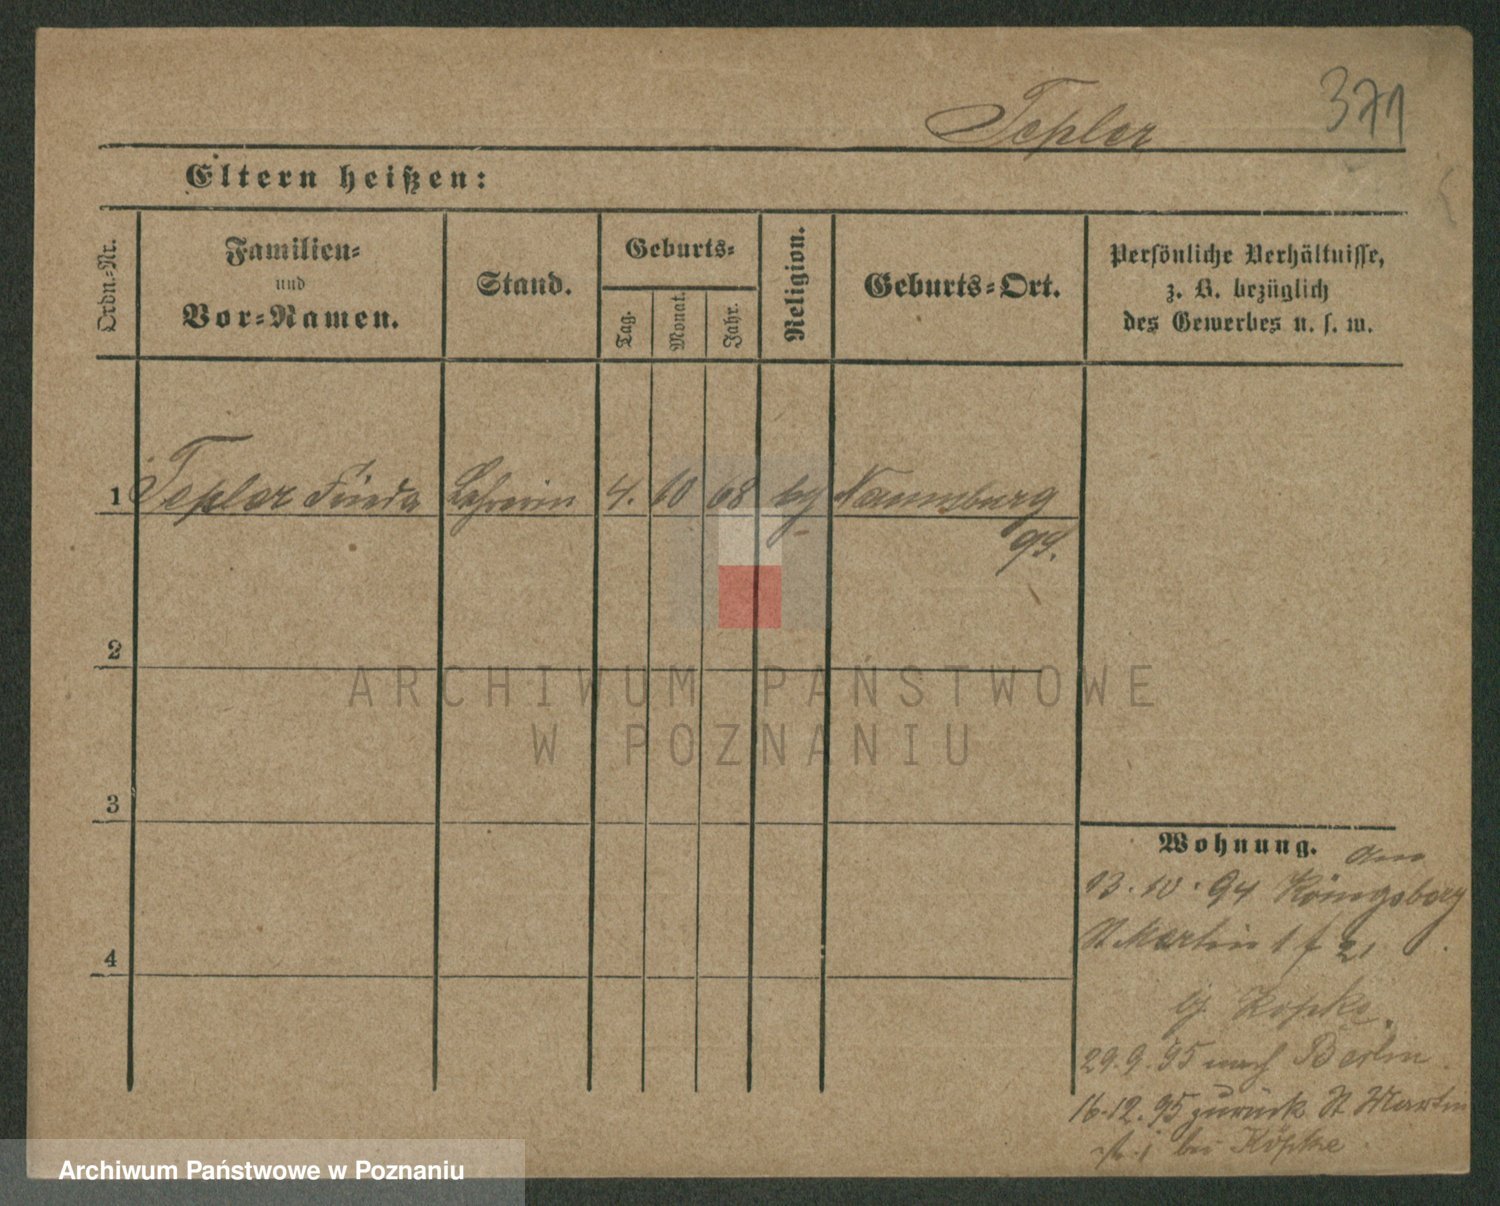 Tepler 371
Eltern heißen:
Ordn.-Nr.
Familien-
und
Vor-Namen.
Stand.
Geburts-
Tag.
Monat.
Jahr.
Religion.
Geburts-Ort.
Persönliche Verhältnisse,
z. B. bezüglich
des Gewerbes u. s. w.
1 Tepler Frieda Lehrerin 4. 10 68 Naumburg
2
3
4
ARCHIWUM PAŃSTWOWE
W POZNANIU
Wohnung.
13.10.94 Königsberg
St Martin 1
29.9.95 nach Berlin
16.12.95 zurück St Martin
bei Köpke
Archiwum Państwowe w Poznaniu